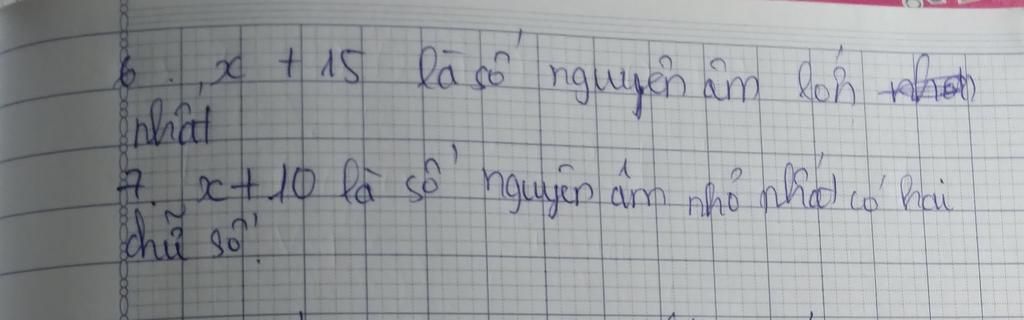 6. x + 15 là số nguyên âm lớn
nhất
7. x + 10 là số nguyên âm nhỏ nhất có hai
chữ số.